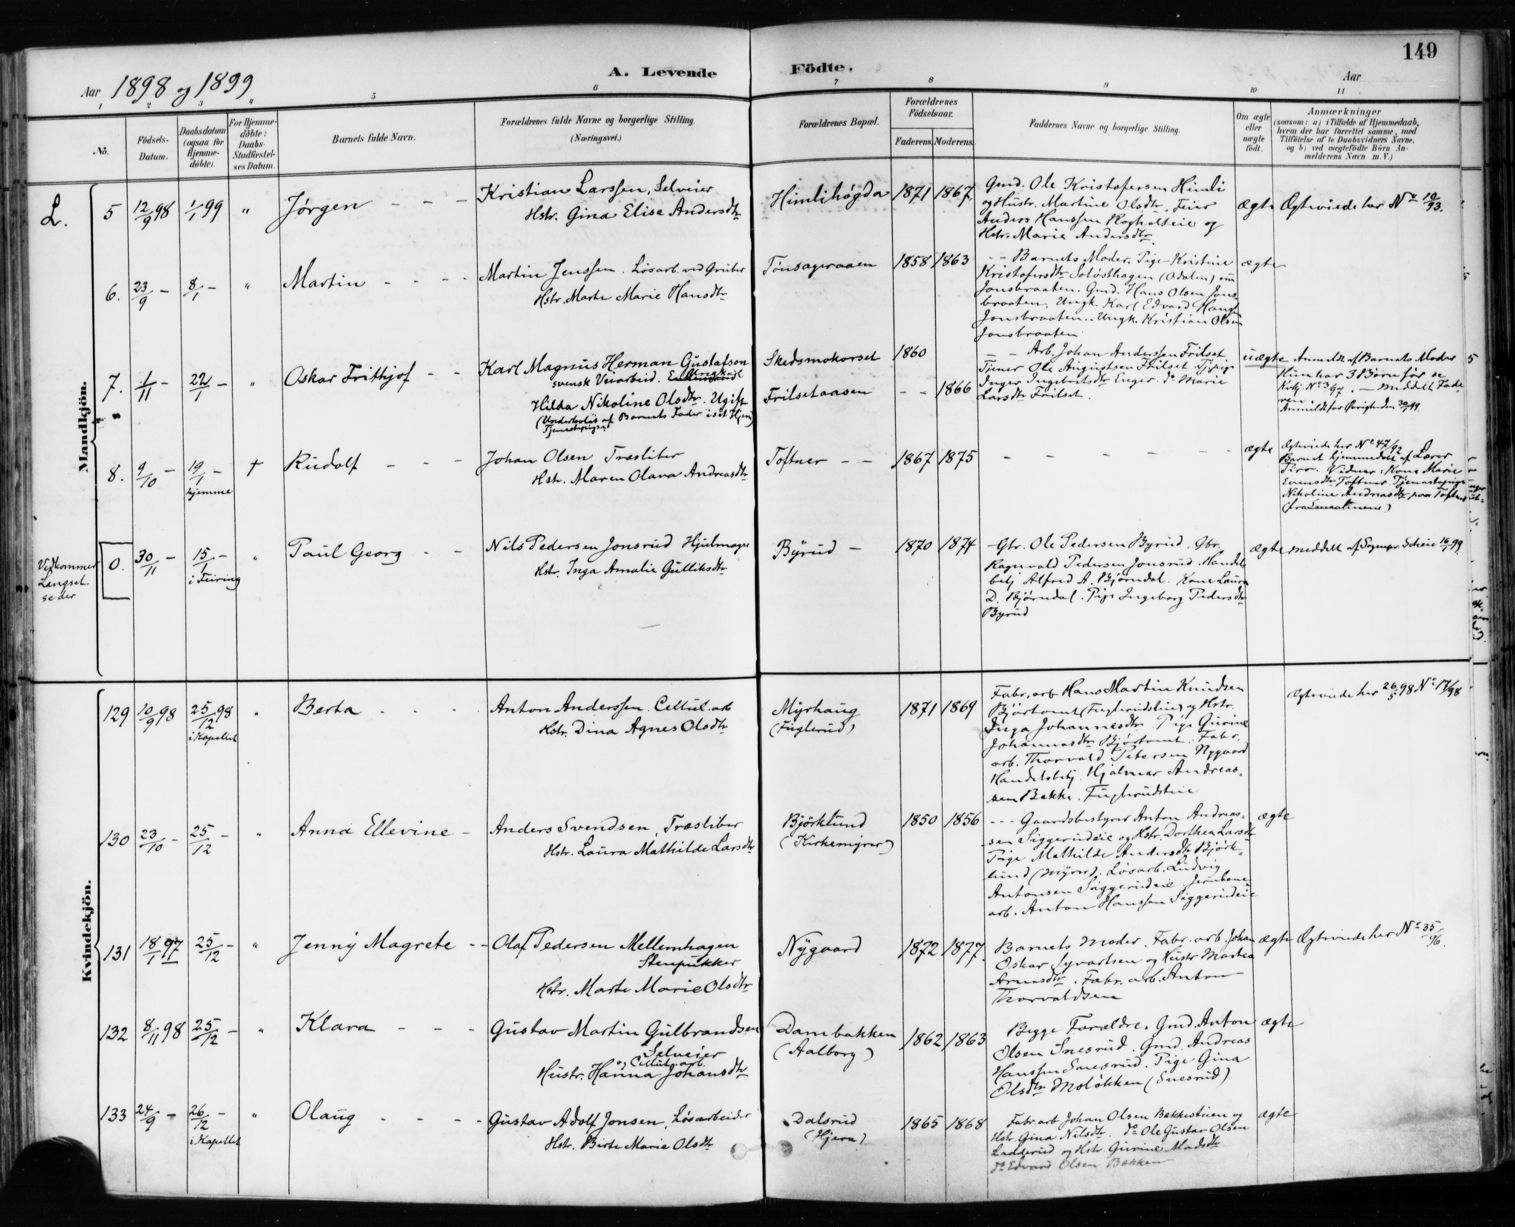 149
Aar 1898 og 1899
A. Levende Födte.
Aar
1 2 3 4 5 6 7 8 9 10 11
No.
Födsels-
Datum.
Daabsdatum
(ogsaa for
Hjemme-
döbte).
For Hjemme-
döbte:
Daabs-
Stadfæstel-
ses Datum.
Barnets fulde Navn.
Forældrenes fulde Navne og borgerlige Stilling.
(Næringsvei.)
Forældrenes Bopæl.
Forældrenes
Födselsaar.
Faderens. Moderens.
Faddernes Navne og borgerlige Stilling.
Om ægte
eller
uægte
födt.
Anmærkninger
(saasom: a) i Tilfælde af Hjemmedaab,
hvem der har forrettet samme, med
Tilföielse af to Daabsvidners Navne,
og b) ved uægtefödte Börn An-
melderens Navn m. V.)
Mandkjön.
L.
5 12/9 98 1/1 99 " Jørgen
Kristian Larssen, Selveier
Hstr. Gina Elise Andersdtr
Himlihögda 1871 1867
Gmd. Ole Kristofersen Himli
og Hustr. Martine Olsdtr. Feier
Anders Hanssen og
Hstr. Marie Andersdtr.
ægte
Ægteviede her No 10/93.
6. 23/9 – 8/1 – " Martin
Martin Jenssen. Løsarb. ved Gruber
Hstr. Marte Marie Hansdtr
Tonsageraaen 1858 1863
Barnets Moder. Pige Kristine
Kristofersdtr (Odalen)
Jonsbraaten. Gmd. Hans Olsen Jons
braaten. Ungk. Karl Edvard Hansen
Jonsbraaten. Ungk. Kristian Olsen
Jonsbraaten
ægte
7. 1/11 – 22/1 – " Oskar Frithjof
Karl Magnus Herman Gustafson
svensk Veiarbeid. Ungkarl
Hilda Nikoline Olsdtr. Ugift
(Underholdes af Barnets Fader i sit Hjem)
Tjenestepige
Skedsmokorset 1860
Frilsetaasen – – 1866
Arb. Johan Anderssen Frilset
Tjener Ole Augustsen Frilset. Tjpige
Inger Ingebretsdtr Enger. do Marie
Larsdtr Frilset.
uægte
Anmeldt af Barnets Moder
Hun har 3 Børn før se
Kirkj. No 3/97. – meddelt Fade
ren
Anmeldt for Øvrigheden 30/1 99.
8. 9/10 – 19/1 – † Rudolf
hjemme
Johan Olsen Træsliber
Hstr. Maren Olava Andreasdtr
Toftner 1867 1875
ægte
Ægteviede her No 47/92
Barnet hjemmedøbt af Lærer
Vidner: Kone Marie
Evensdtr Toftner Tjenestepige
Nikoline Andreasdtr paa Toftner
Vedkommer
Langset
seder
0. 30/11 – 15/1 – " Paul Georg
i Feiring
Nils Pedersen Jonsrud Hjulmager
Hstr. Inga Amalie Gulliksdtr
Byrud – 1870 1874
Gbr. Ole Pedersen Byrud. Gbr.
Ragnvald Pedersen Jonsrud Handels
betj Alfred A. Bjørndal. Kone Laura
D. Bjørndal. Pige Ingeborg Pedersdtr
Byrud
ægte
meddelt af Sogneprest Scheie 16/1 99
Kvindekjön.
129 10/9 98 25/12 98 " Berta
i Kapellet
Anton Anderssen. Cellul. arb
Hstr. Dina Agnes Olsdtr
Myrhaug
(Fuglerud)
1871 1869
Fabr. arb Hans Martin Knudsen
Bjørtomt (Fuglerudeie) og Hstr.
Inga Johannesdtr. Pige Gurine
Johannesdtr Bjørtomt. Fabr.
arb. Thorvald Petersen Nygaard
Handelsbetj. Hjalmar Andreas-
sen Bakke. Fuglerudeie
Ægteviede her 26/5 98 No 17/98
130 23/10 – 25/12 – " Anna Ellevine
Anders Svendsen, Træsliber
Hstr. Laura Mathilde Larsdtr
Bjørklund
(Kirkemyrer)
1850 1856
Gaardsbestyrer Anton Andreas-
sen Siggerudeie og Hstr. Dorthea Larsdtr
Pige Mathilde Andersdtr Bjørk-
lund (Myrer). Løsarb. Ludvig
Antonsen Siggerudeie. Jernbane
arb. Anton Hanssen Siggerudeie
ægte
131 18/1 97 25/12 – " Jenny Magrete
Olaf Pedersen Mellemhagen
Stenpukker
Hstr. Marte Marie Olsdtr
Nygaard 1872 1877.
Barnets Moder. Fabr. arb. Johan
Oskar Syvartsen og Hustr Martea
Arnesdtr. Fabr. arb. Anton
Thorvaldsen
ægte
Ægteviede her No 35/96.
132 8/11 98 25/12 – " Klara
Gustav Martin Gulbrandsen
Selveier
og Cellul. arb.
Hustr. Hanna Johansdtr
Dambakken
(Aalborg)
1862 1863
Begge Forældre. Gmd. Anton
Olsen Snesrud. Gmd. Andreas
Hanssen Snesrud. Pige Gina
Olsdtr Moløkken (Snesrud)
ægte
133 24/9 – 26/12 – " Olaug
i Kapellet
Gustav Adolf Jonsen, Løsarbeider
Hstr. Birte Marie Olsdtr
Dalsrud
(Hjera)
1865 1868
Fabr. arb Johan Olsen Bekkestuen og
Hstr. Gina Nilsdtr. do Ole Gustav Olsen
Ladderud og Hstr. Gurine Madsdtr
do Edvard Olsen Bakken
ægte